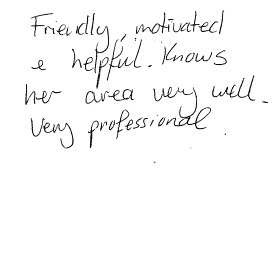 Friendly, motivated
e helpful. Knows
her area very well.
Very professional.